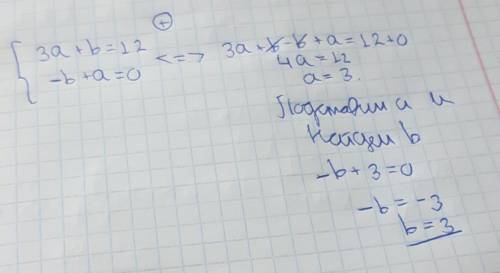 ⊕
{ 3a + b = 12 <=> 3a + b - b + a = 12 + 0
-b + a = 0
4a = 12
a = 3.
Подставим a и
Найдем b
-b + 3 = 0
-b = -3
b = 3